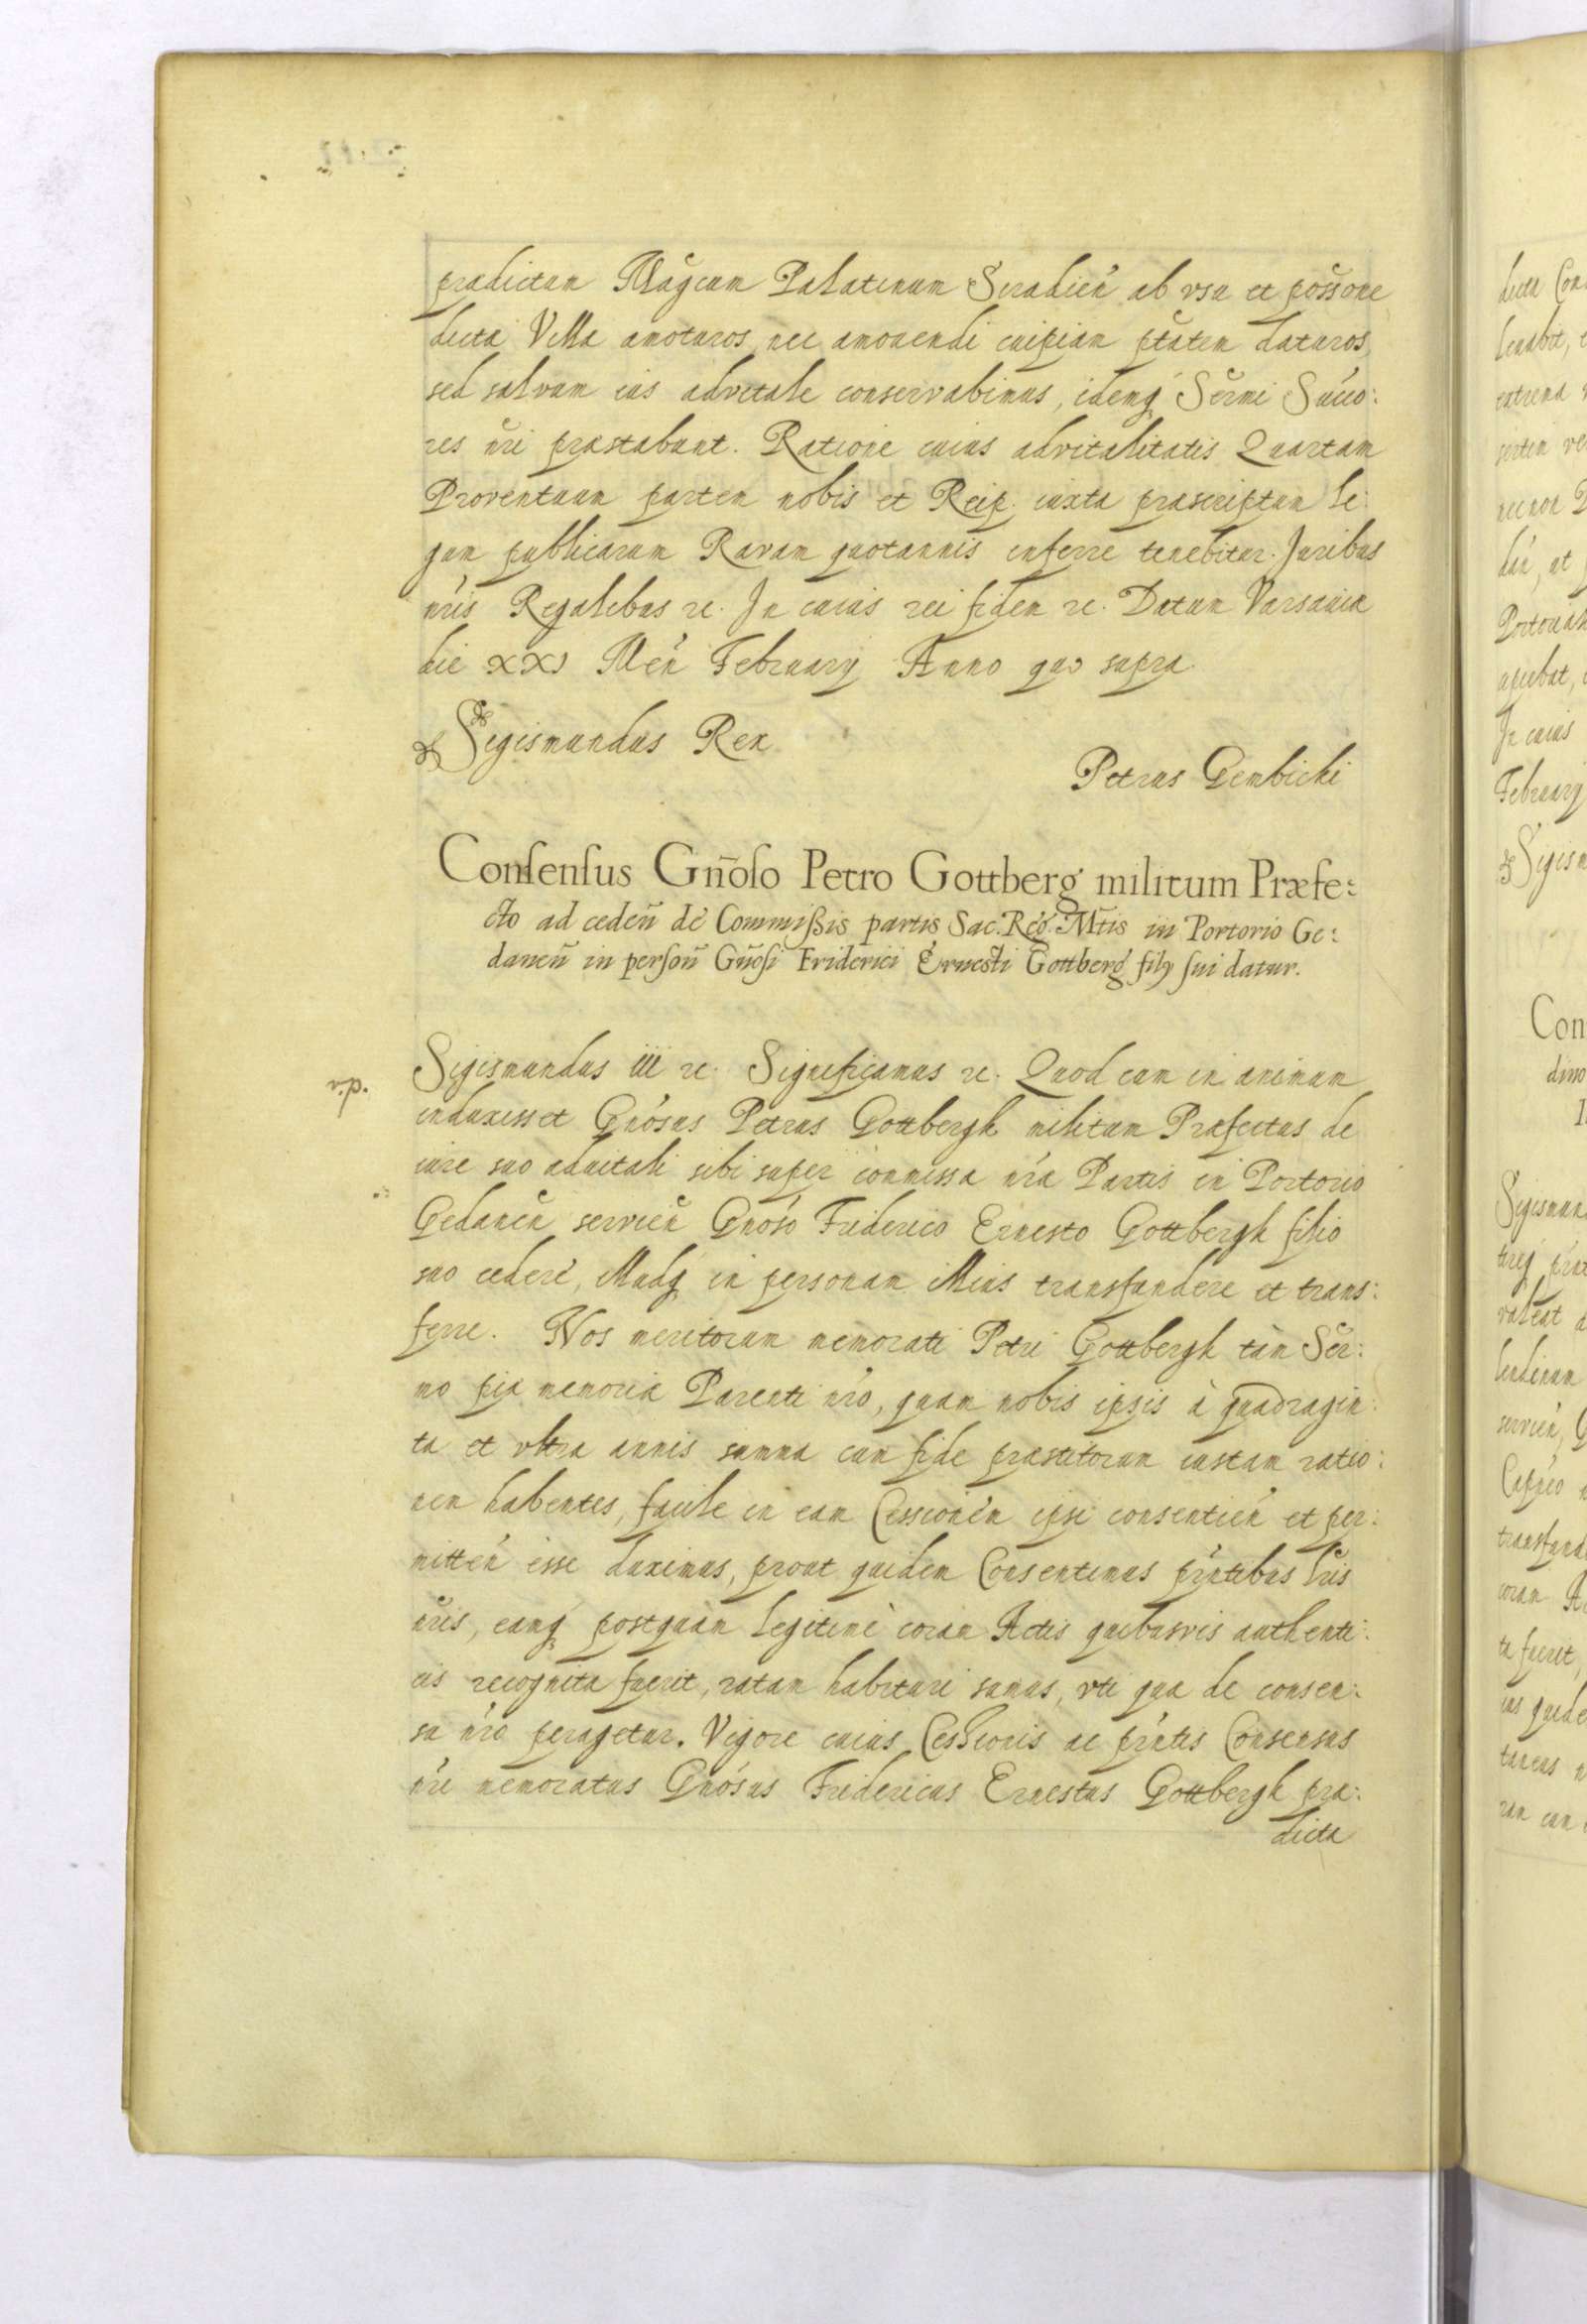 prædictum Mag̃cum Palatinum Siradień ab vsu et poss̃one
dictæ Villæ amoturos, nec amouendi cuipiam ptãtem daturos,
sed saluum ius aduitale conservabimus, idemq́ Ser̃mi Succo:
res nr̃i præstabunt. Ratione cuius advitalitatis Quartam
Proventuum partem nobis et Reip. iuxta præscriptum le:
gum publicarum Ravam quotannis inferre tenebitur. Juribus
nr̃is Regalibus ꝛc. In cuius rei fidem ꝛc. Datum Varsauiæ
die XXJ Meń February Anno quo supra
Sigismundus Rex
Petrus Gembicki
Consensus Gñoso Petro Gottberg militum Præfe:
cto ad cedeñ de Commissis partis Sac. Reg. Mt̃is in Portorio Ge:
daneñ in persoñ Gñosi Friderici Ernesti Gottberg filij sui datur.
r.p.
Sigismundus iii ꝛc. Significamus ꝛc. Quod cum in animum
induxisset Gnósus Petrus Gottbergk militum Præfectus de
iure suo aduitali sibi super commissa nr̃æ Partis in Portorio
Gedaneñ servieñ Gnóso Friderico Ernesto Gottbergk filio
suo cedere, illudq́ in personam illius transfundere et trans:
ferre. Nos meritorum memorati Petri Gottbergk tàm Ser̃:
mo piæ memoriæ Parenti nr̃o, quam nobis ipsis à quadragin:
ta et vltra annis summa cum fide præstitorum iustam ratio:
nem habentes, facile in eam Cessionem ipsi consentień et per:
mitteń esse duximus, prout quidem Consentimus pr̃ntibus lr̃is
nr̃is, eamq́ postquàm legitimè coram Actis quibusvis authenti:
cis recognita fuerit, ratam habituri sumus, vti quæ de consen:
su nr̃o peragetur. Vigore cuius Cessionis ac pr̃ntis Consensus
nr̃i memoratus Gnósus Fridericus Ernestus Gottbergk præ:
dicta